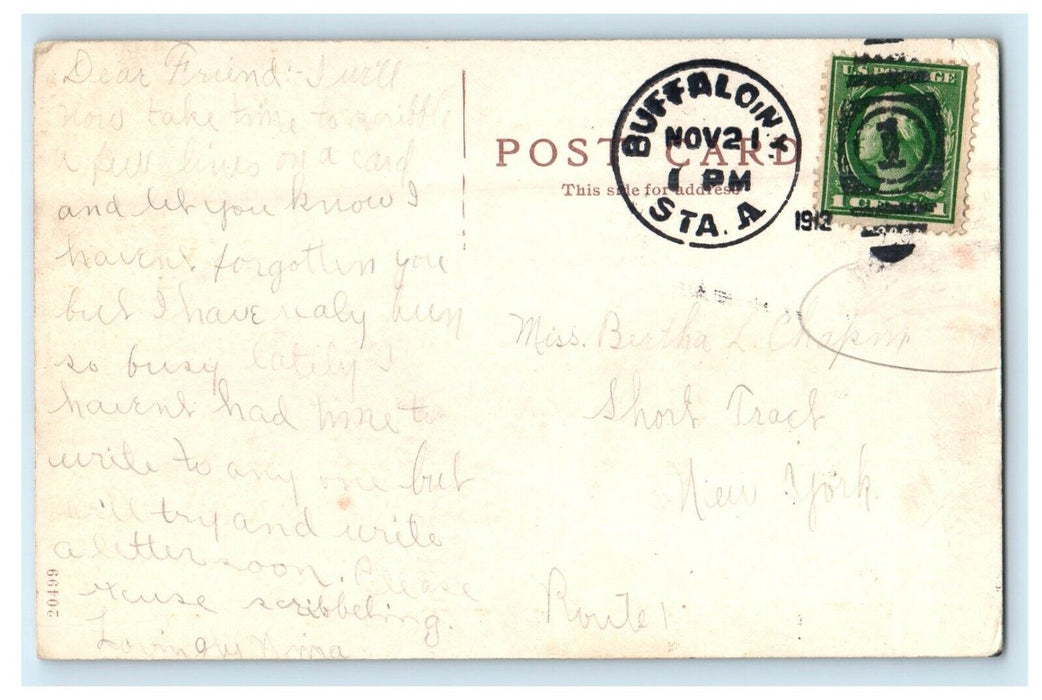 Dear Friend:- I will
now take time to scribble
a few lines on a card
and let you know I
havent forgotten you
but I have realy been
so busy lately I
havent had time to
write to any one but
will try and write
a letter soon. Please
excuse scribbeling.
Lovingly Nina
20499
POST CARD
This side for address
BUFFALO, N.Y.
NOV 21
1 PM
STA. A
1912
U.S. POSTAGE
1
1 CENT 1
Miss. Bertha L. Chapin
Short Tract
New York
Route 1